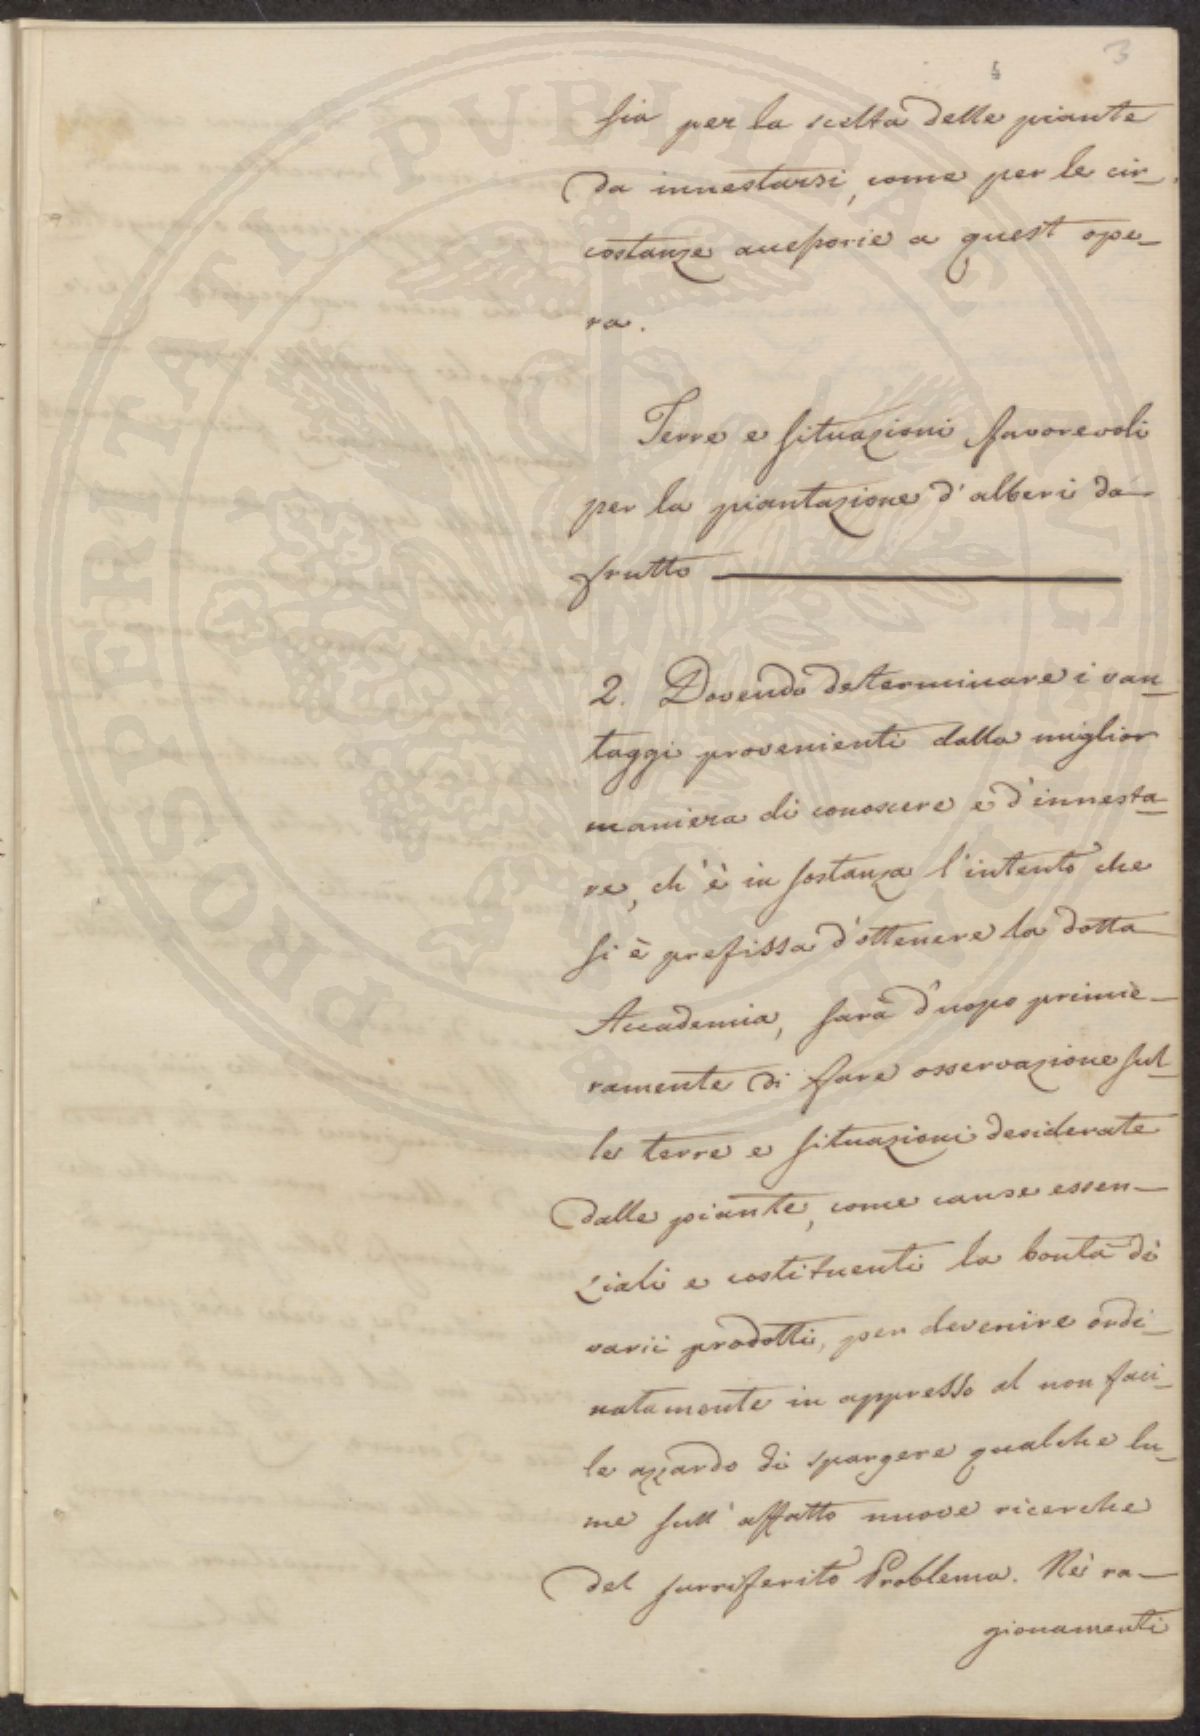 3
sia per la scelta delle piante
da innestarsi, come per le cir-
costanze accessorie a quest ope-
ra.
Terre e situazioni favorevoli
per la piantazione d'alberi da
frutto
2. Dovendo determinare i van-
taggi provenienti dalla miglior
maniera di conoscere e d'innesta-
re, ch'è in sostanza l'intento che
si è prefissa d'ottenere la dotta
Accademia, sarà d'uopo primie-
ramente di fare osservazione sul-
le terre e situazioni desiderate
dalle piante, come cause essen-
ziali e costituenti la bontà di
varii prodotti, per devenire ordi-
natamente in appresso al non faci-
le azzardo di spargere qualche lu-
me sull'affatto nuove ricerche
del surriferito Problema. Nei ra-
gionamenti
PROSPERITATI PUBLICAE AUGENDAE